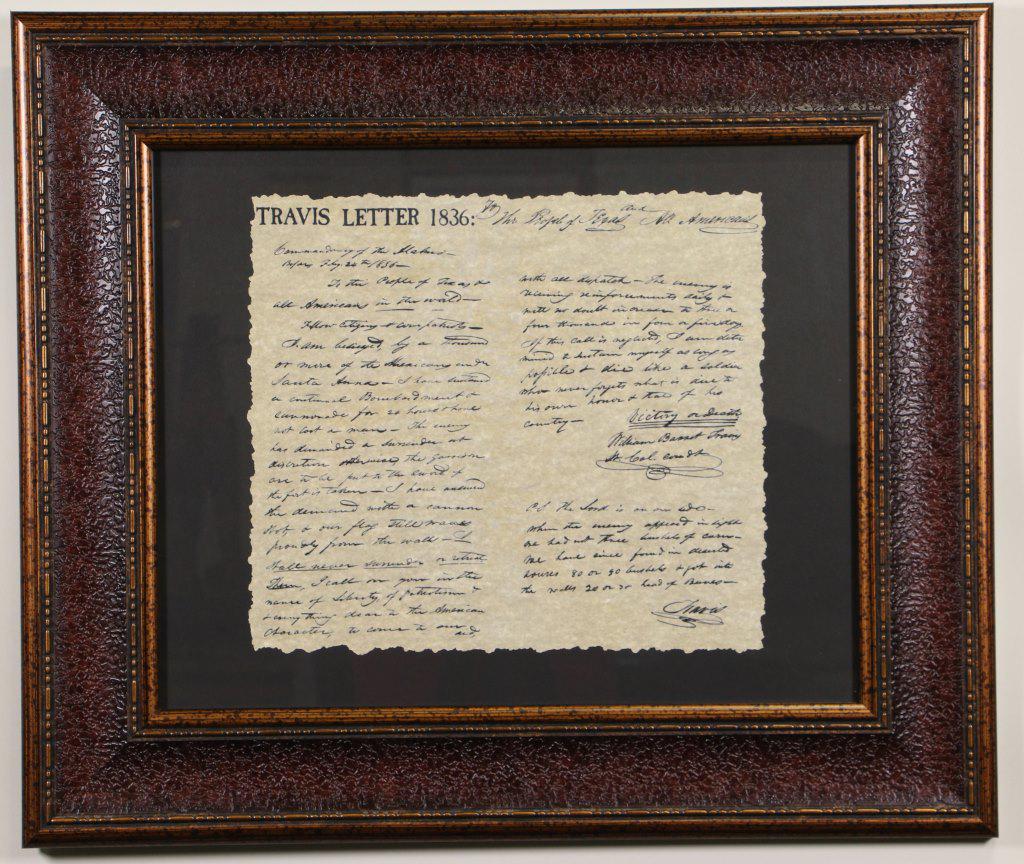 TRAVIS LETTER 1836: To The People of Texas and All Americans
Commandancy of the Alamo—
Bejar, Feby. 24th 1836—
To the People of Texas &
all Americans in the world—
Fellow Citizens & compatriots—
I am besieged, by a thousand
or more of the Mexicans under
Santa Anna— I have sustained
a continual Bombardment &
cannonade for 24 hours & have
not lost a man— The enemy
has demanded a surrender at
discretion, otherwise, the garrison
are to be put to the sword, if
the fort is taken— I have answered
the demand with a cannon
shot, & our flag still waves
proudly from the walls— I
shall never surrender or retreat
Then, I call on you in the
name of Liberty, of patriotism &
everything dear to the American
character, to come to our aid,
with all dispatch— The enemy is
receiving reinforcements daily &
will no doubt increase to three or
four thousand in four or five days.
If this call is neglected, I am deter
mined to sustain myself as long as
possible & die like a soldier
who never forgets what is due to
his own honor & that of his
country—
Victory or Death
William Barret Travis
Lt. Col. comdt
P.S. The Lord is on our side—
When the enemy appeared in sight
we had not three bushels of corn—
We have since found in deserted
houses 80 or 90 bushels & got into
the walls 20 or 30 head of Beeves—
Travis